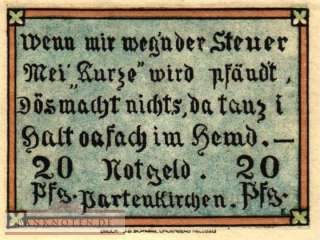 Wenn mir weg'n der Steuer
Mei „Kurze" wird pfändt,
Dös macht nichts, da tanz i
Halt oafach im Hemd. —
20 Notgeld. 20
Pfg. Partenkirchen. Pfg.
BANKNOTEN.DE